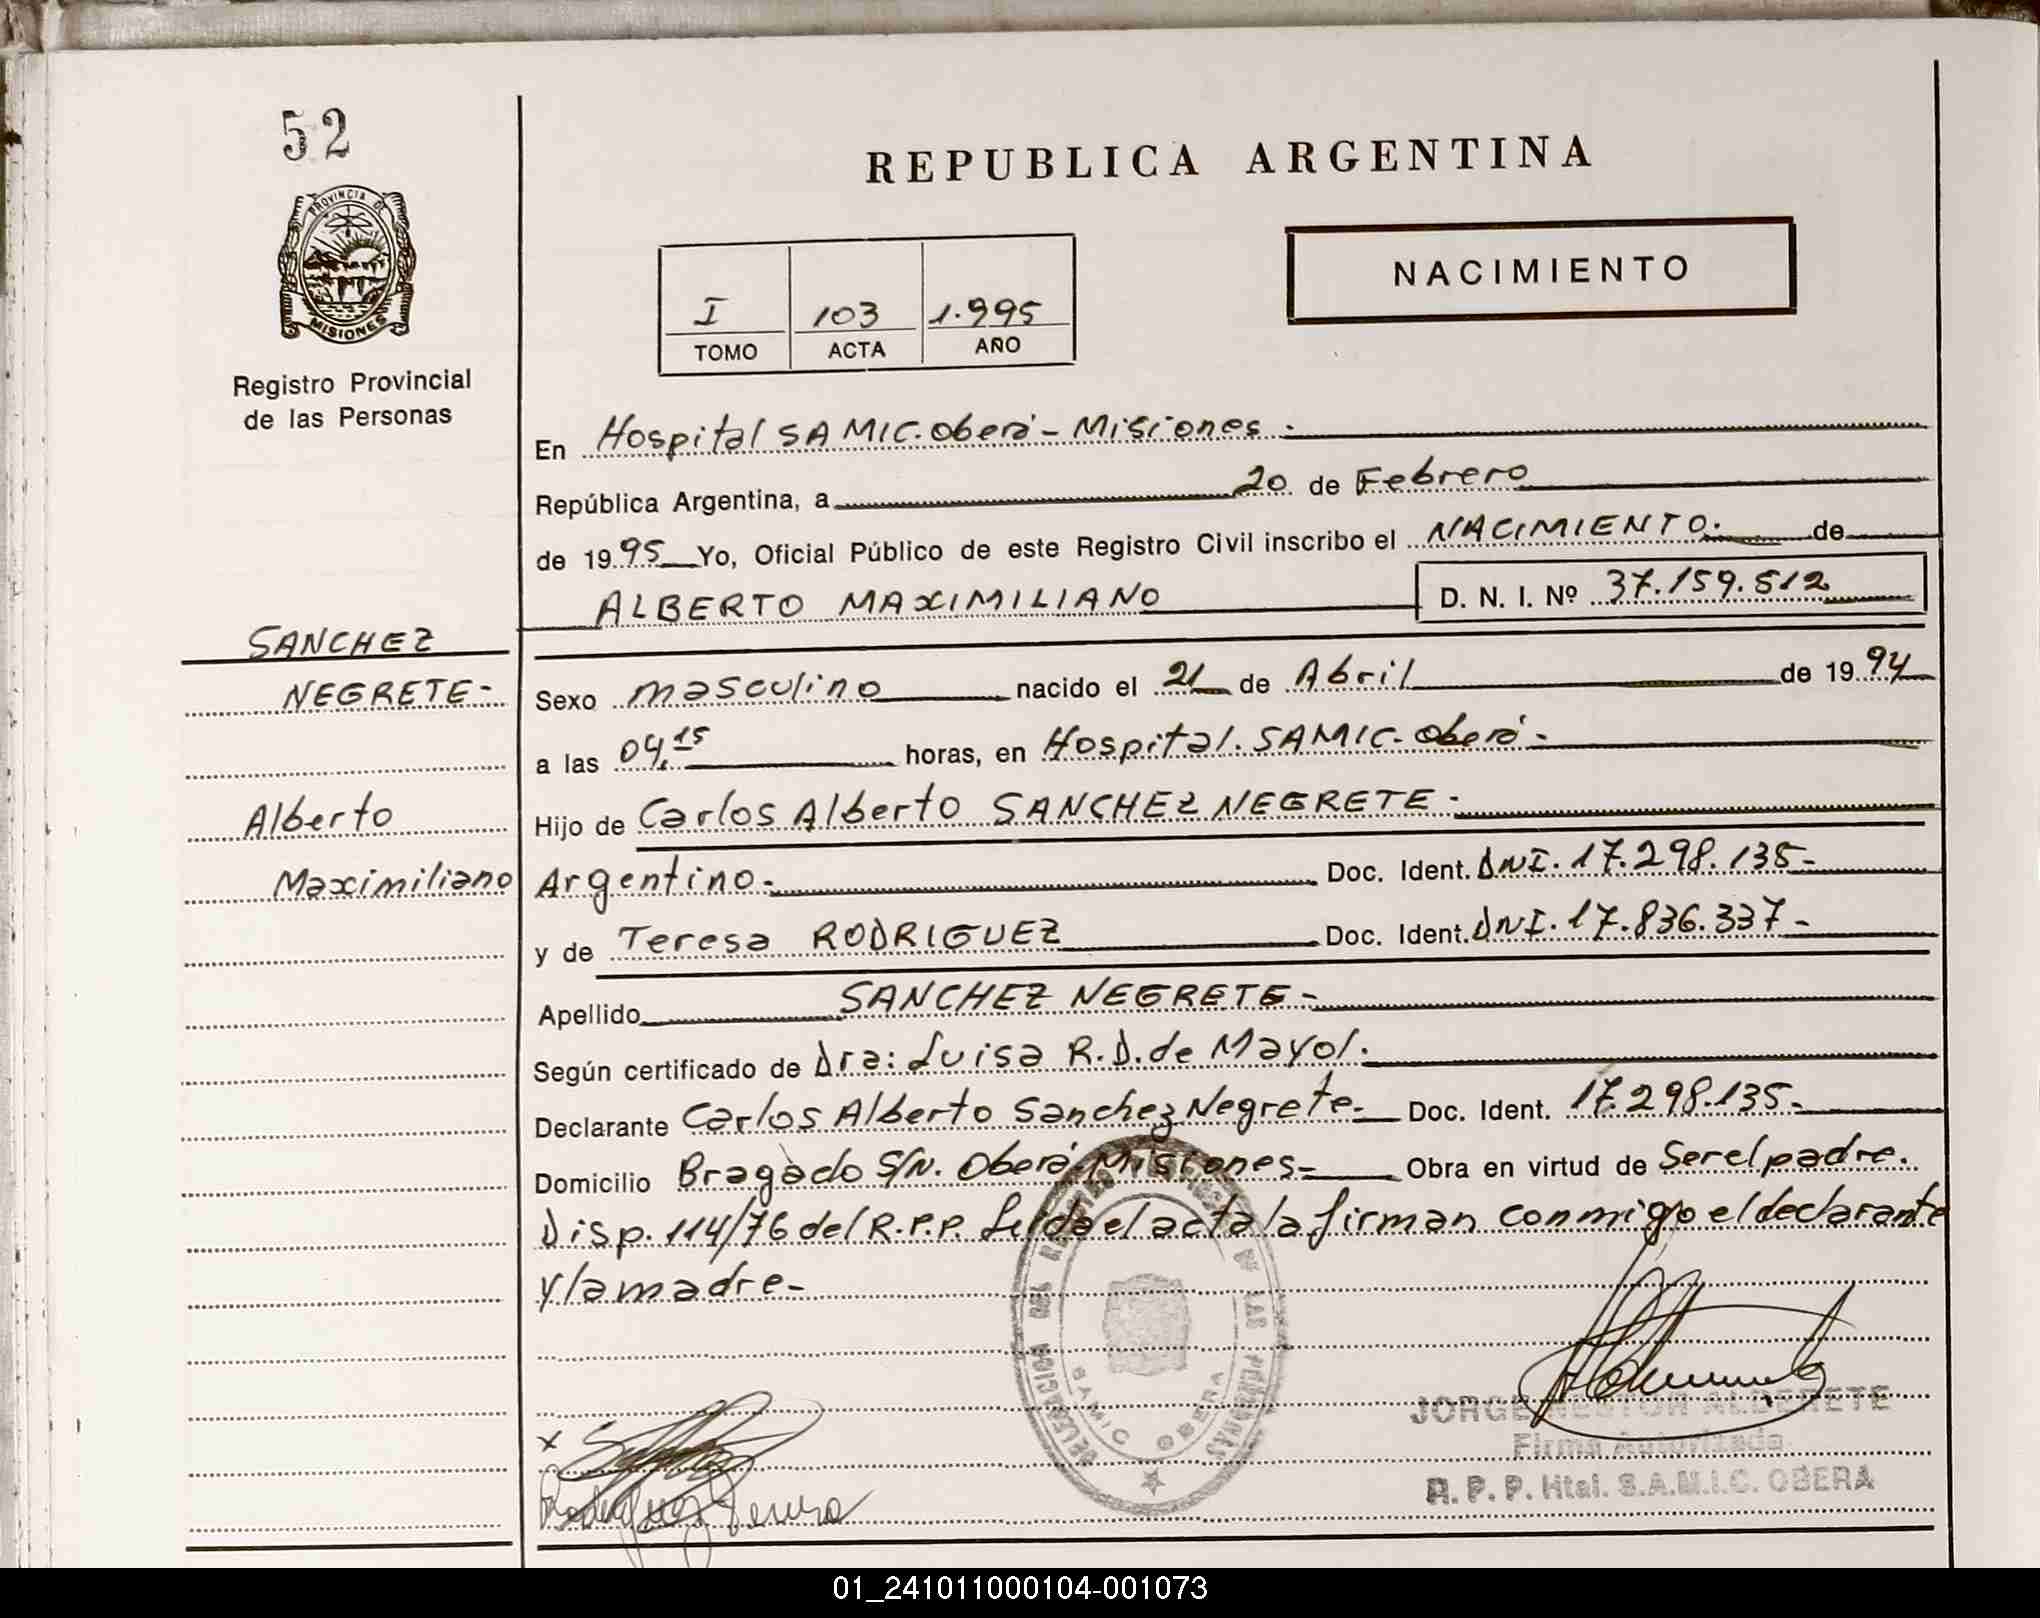 52
PROVINCIA DE
MISIONES
Registro Provincial
de las Personas
REPUBLICA ARGENTINA
NACIMIENTO
I 103 1.995
TOMO ACTA AÑO
En Hospital SAMIC. Oberá - Misiones.
República Argentina, a 20 de Febrero
de 1995 Yo, Oficial Público de este Registro Civil inscribo el NACIMIENTO. de
ALBERTO MAXIMILIANO D. N. I. Nº 37.159.512
SANCHEZ
NEGRETE-
Alberto
Maximiliano
Sexo masculino nacido el 21 de Abril de 1994
a las 04,15 horas, en Hospital. SAMIC. Oberá-
Hijo de Carlos Alberto SANCHEZ NEGRETE-
Argentino- Doc. Ident. DNI. 17.298.135-
y de Teresa RODRIGUEZ Doc. Ident. DNI. 17.836.337-
Apellido SANCHEZ NEGRETE-
Según certificado de Dra: Luisa R.D. de Mayol.
Declarante Carlos Alberto Sanchez Negrete- Doc. Ident. 17.298.135-
Domicilio Bragado S/N. Oberá-Misiones- Obra en virtud de Ser el padre.
Disp. 114/76 del R.P.P. Leída el acta la firman conmigo el declarante
y la madre-
DELEGACION DEL REGISTRO PROVINCIAL DE LAS PERSONAS
SAMIC OBERA
x
Rodriguez Teresa
JORGE NESTOR ALDERETE
Firma Autorizada
R. P. P. Htal. S.A.M.I.C. OBERA
01_241011000104-001073